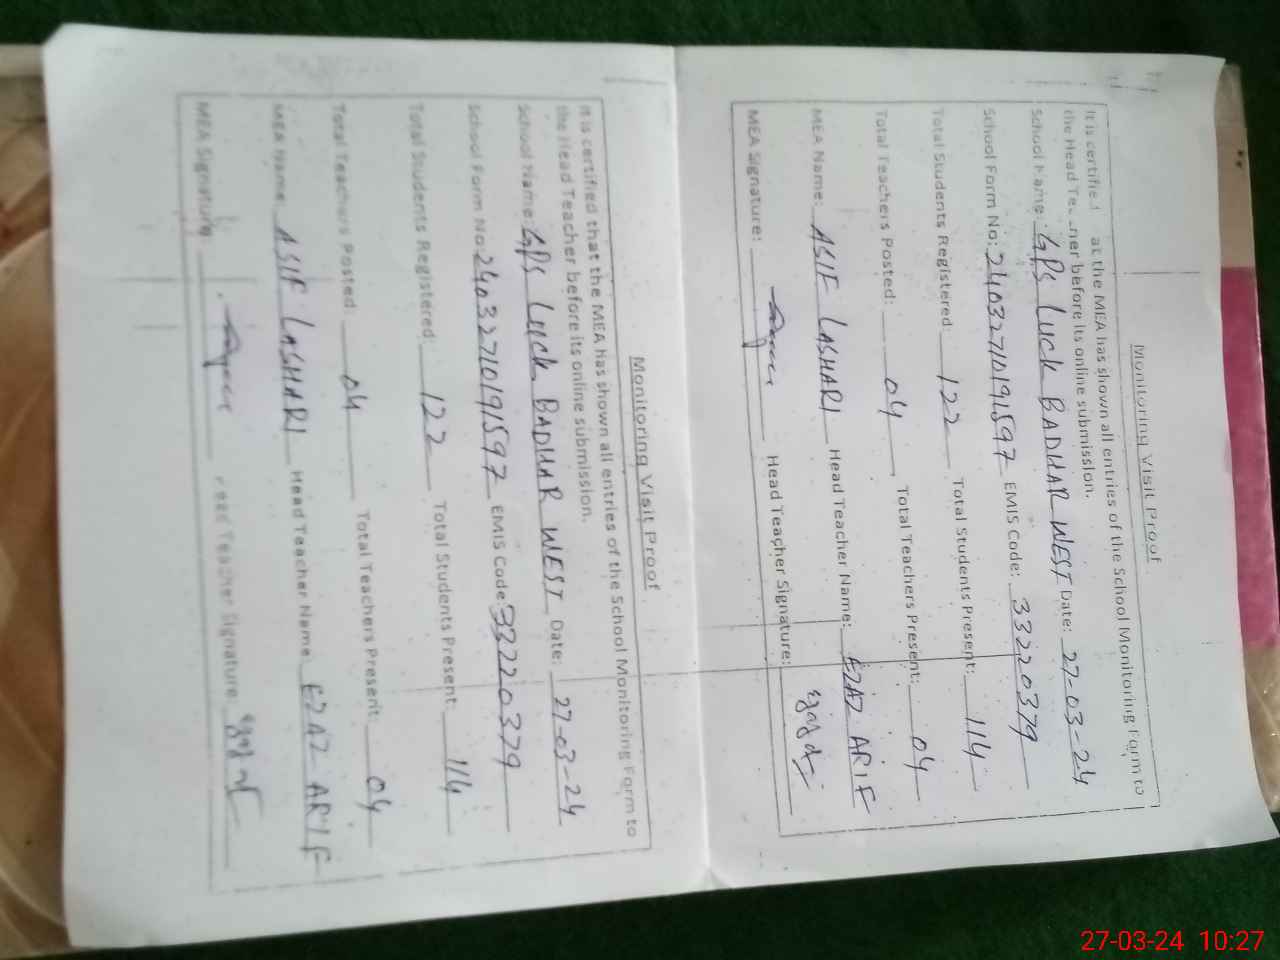 Monitoring Visit Proof
It is certified at the MEA has shown all entries of the School Monitoring Form to
the Head before its online submission.
School Name: GPS Luck BADHAR WEST Date: 27-03-24
School Form No: 24032710191597 EMIS Code: 33220379
Total Students Registered: 122 Total Students Present: 114
Total Teachers Posted: 04 Total Teachers Present: 04
MEA Name: ASIF LASHARI Head Teacher Name: EZAZ ARIF
MEA Signature: Head Teacher Signature:
Monitoring Visit Proof
It is certified that the MEA has shown all entries of the School Monitoring Form to
the Head Teacher before its online submission.
School Name: GPS Luck BADHAR WEST Date: 27-03-24
School Form No: 24032710191597 EMIS Code: 32220379
Total Students Registered: 122 Total Students Present: 114
Total Teachers Posted: 04 Total Teachers Present: 04
MEA Name: ASIF LASHARI Head Teacher Name: EZAZ ARIF
MEA Signature: Head Teacher Signature:
27-03-24 10:27